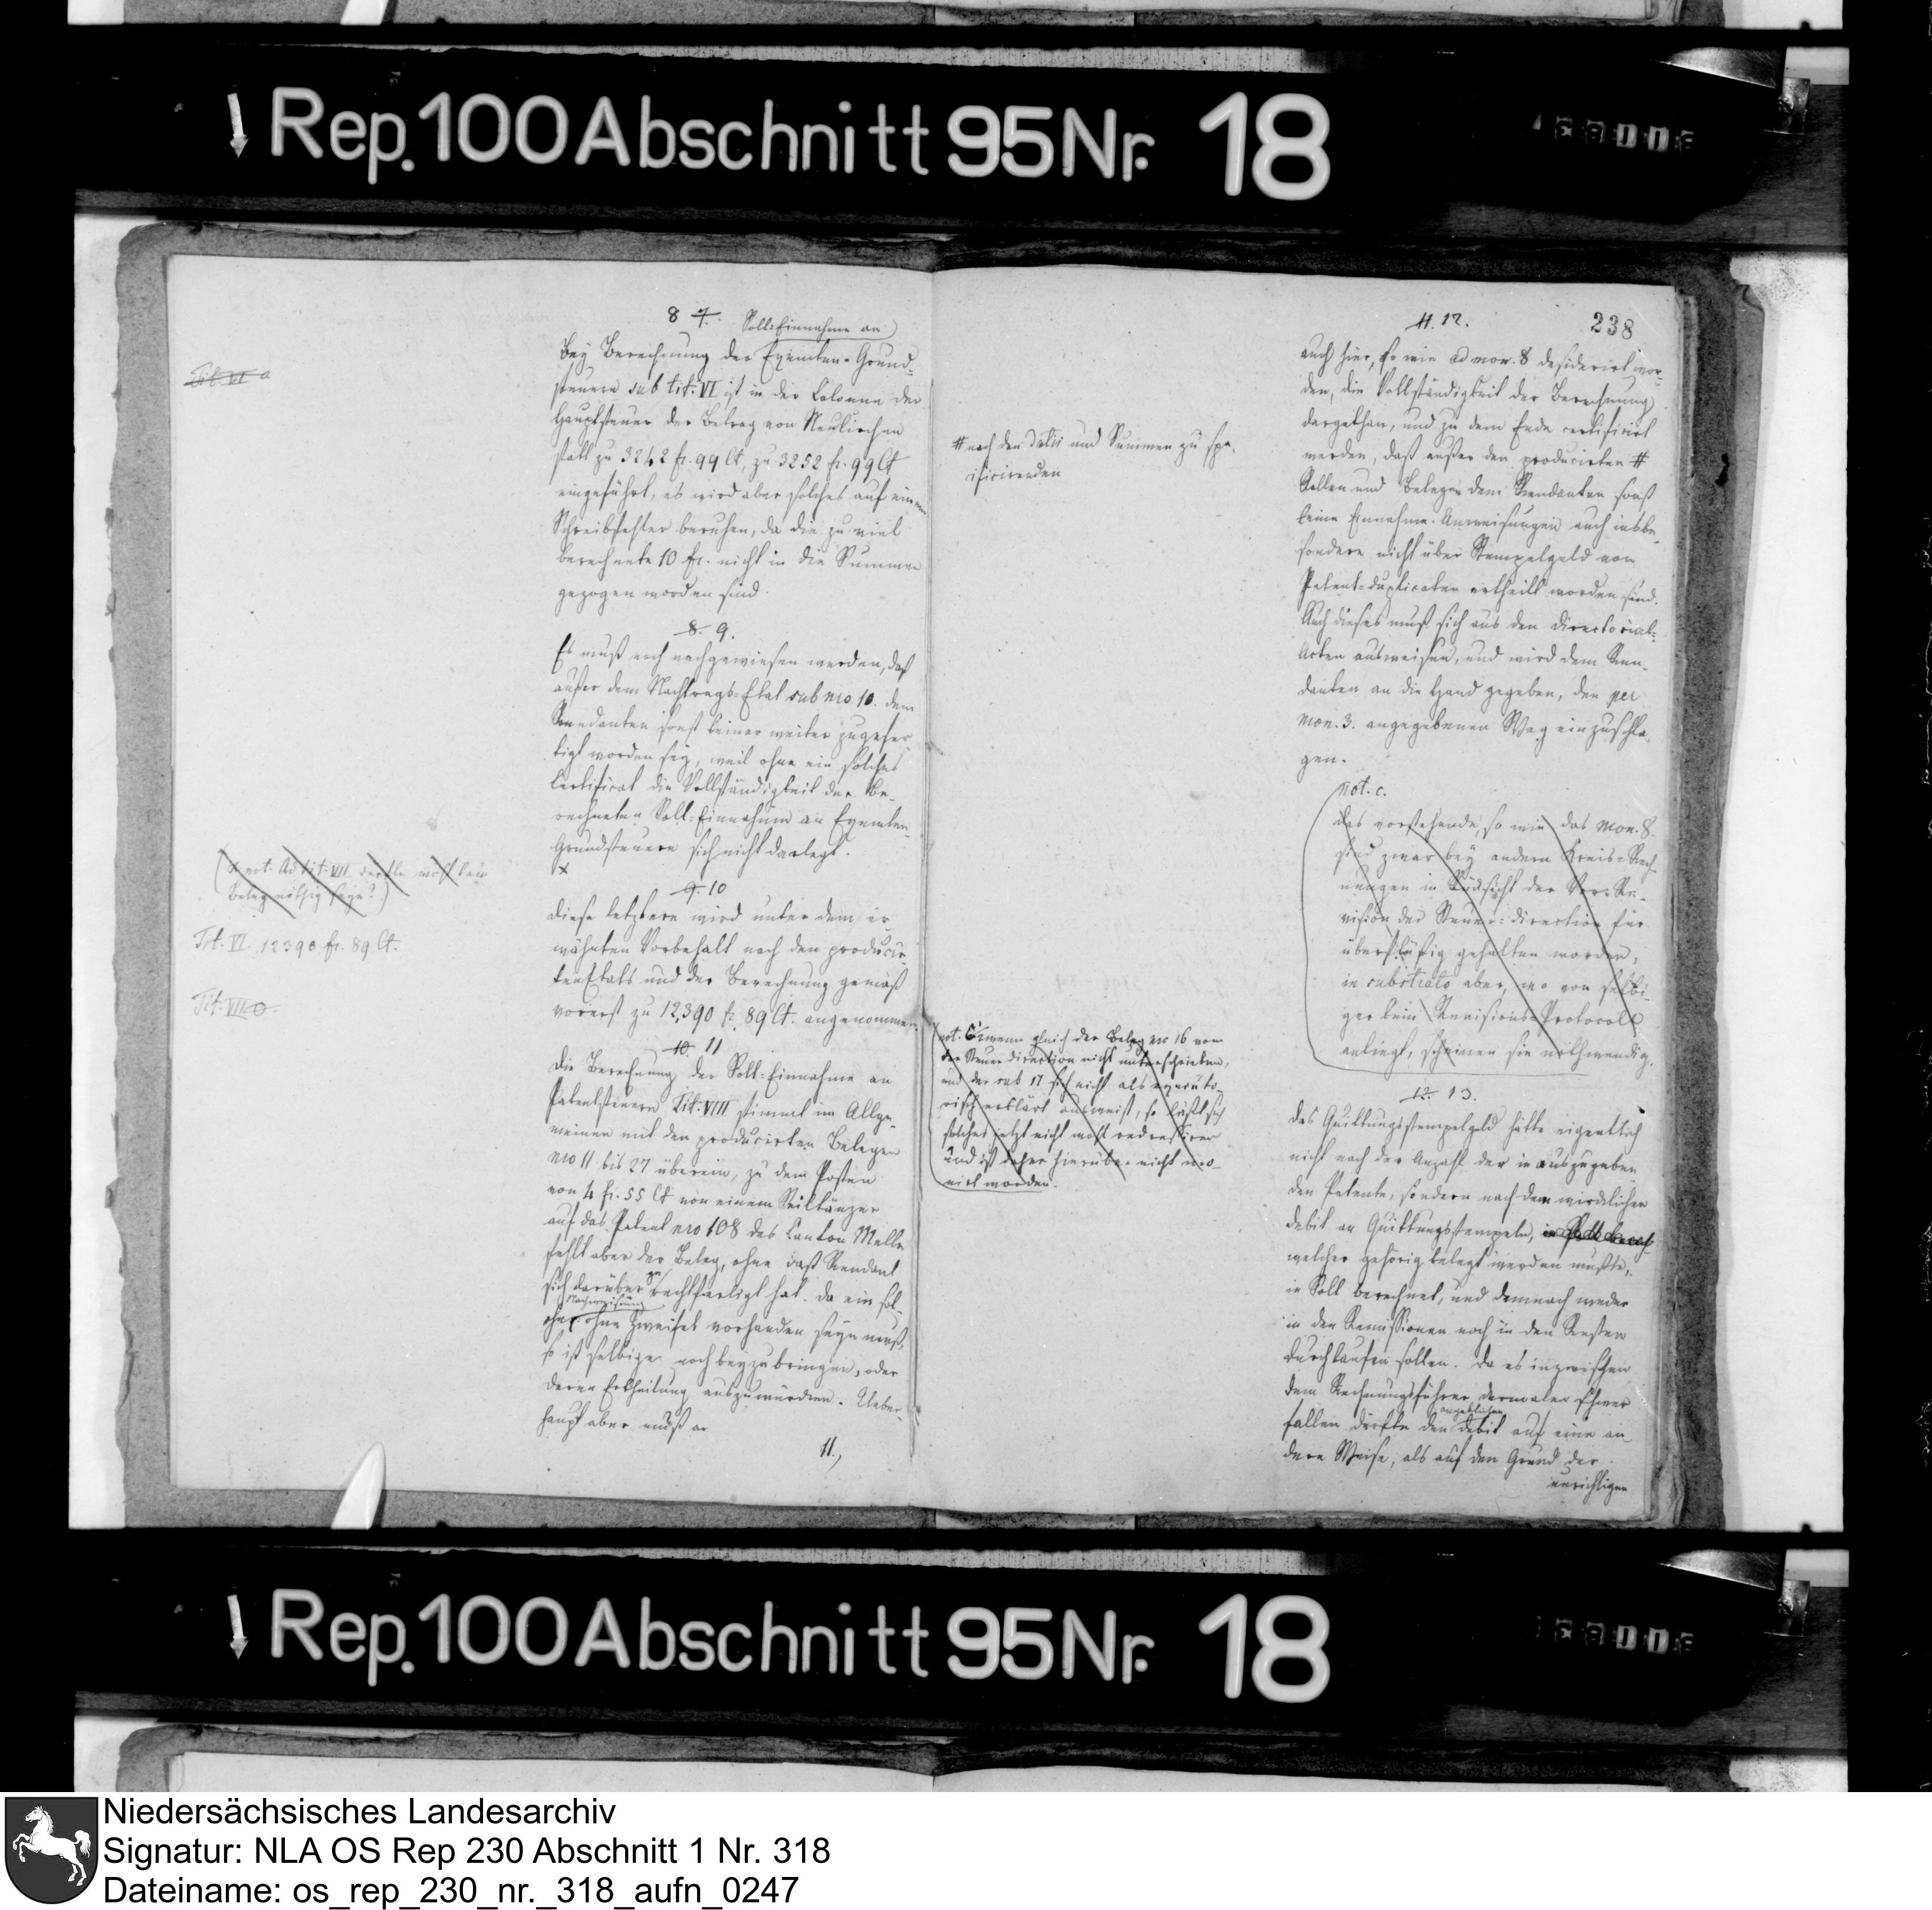 Rep. 100 Abschnitt 95 Nr. 18
8 7. Soll-Einnahme an
Bey Berechnung der Exemten-Grund-
steuern sub tit. VI ist in der Colonne der
Hauptsteuer der Betrag von Neukirchen
statt zu 3242 fr. 99 Ct. zu 3252 fr. 99 Ct
eingeführt, es wird aber solches auf einem
Schreibfehler beruhen, da die zu viel
berechnete 10 fr. nicht in die Summe
gezogen worden sind.
Tit. VI a
8. 9.
Es muß noch nachgewiesen werden, daß
außer dem Nachtrags-Etat sub nro. 10. dem
Rendanten sonst keiner weiter zugefer
tigt worden sey, weil ohne ein solches
Certificat die Vollständigkeit der be-
rechneten Soll-Einnahme an Exemten-
Grundsteuern sich nicht darlegt.
(x not. Ad tit. VII dürfte wohl kein
Beleg nöthig seyn?)
9. 10
Diese letztere wird unter dem er-
wähnten Vorbehalt nach den producir-
ten Etats und der Berechnung gemäß
vorerst zu 12,390 fr. 89 Ct. angenommen.
Tit. VI. 12390 fr. 89 Ct.
Tit. VII 0.
10. 11
Die Berechnung der Soll-Einnahme an
Patentsteuern Tit. VIII stimmt im Allge-
meinen mit den producirten Belegen
nro 11 bis 27 überein, zu dem Posten
von 4 fr. 55 Ct von einem Seiltänzer
auf das Patent nro 108 des Canton Melle
fehlt aber der Beleg, ohne daß Rendant
sich darüber gerechtfertigt hat. Da ein sol-
Nachweisung
che ohne Zweifel vorhanden seyn muß,
so ist selbige noch beyzubringen, oder
deren Ertheilung auszuwürken. Ueber-
haupt aber muß er
11.,
# nach den Datis und Summen zu spe-
cificirenden
not. wenn gleich der Beleg nro 16 von
der Steuer direction nicht unterschrieben,
und der sub 17 sich nicht als executo-
risch erklärt ausweist, so läßt sich
solches jetzt nicht wohl redressiren
und ist daher hierüber nicht mo-
nirt worden.
238
11. 12.
auch hier, so wie ad mon. 8 desiderirt wor-
den, die Vollständigkeit der Berechnung
dargethan, und zu dem Ende certificirt
werden, daß außer den producirten #
Rollen und Belegen dem Rendanten sonst
keine Einnahme-Anweisungen auch insbe-
sondere nicht über Stempelgeld von
Patent-duplicaten ertheilt worden sind.
Auch dieses muß sich aus den Directorial-
Acten ausweisen, und wird dem Ren-
danten an die Hand gegeben, den per
mon. 3. angegebenen Weg einzuschla-
gen.
not. c.
das vorstehende, so wie das mon. 8.
sind zwar bey andern Kreis-Rech-
nungen in Rücksicht der Vor-Re-
vision der Steuer-direction für
überflüßig gehalten worden,
in substrato aber, wo von selbi-
ger kein Revisions-Protocoll
anliegt, scheinen sie nothwendig.
12. 13.
Das Quittungsstempelgeld hätte eigentlich
nicht nach der Anzahl der in auszugeben
den Patente, sondern nach dem wirklichen
debit an Quittungsstempeln,
welcher gehörig belegt werden mußte,
in Soll berechnet, und demnach weder
in den Remissionen noch in den Resten
durchlaufen sollen. Da es inzwischen
dem Rechnungsführer dermalen schwer
angeblichen
fallen dürfte den debit auf eine an-
dere Weise, als auf den Grund der
unrichtigen
Rep. 100 Abschnitt 95 Nr. 18
Niedersächsisches Landesarchiv
Signatur: NLA OS Rep 230 Abschnitt 1 Nr. 318
Dateiname: os_rep_230_nr._318_aufn_0247